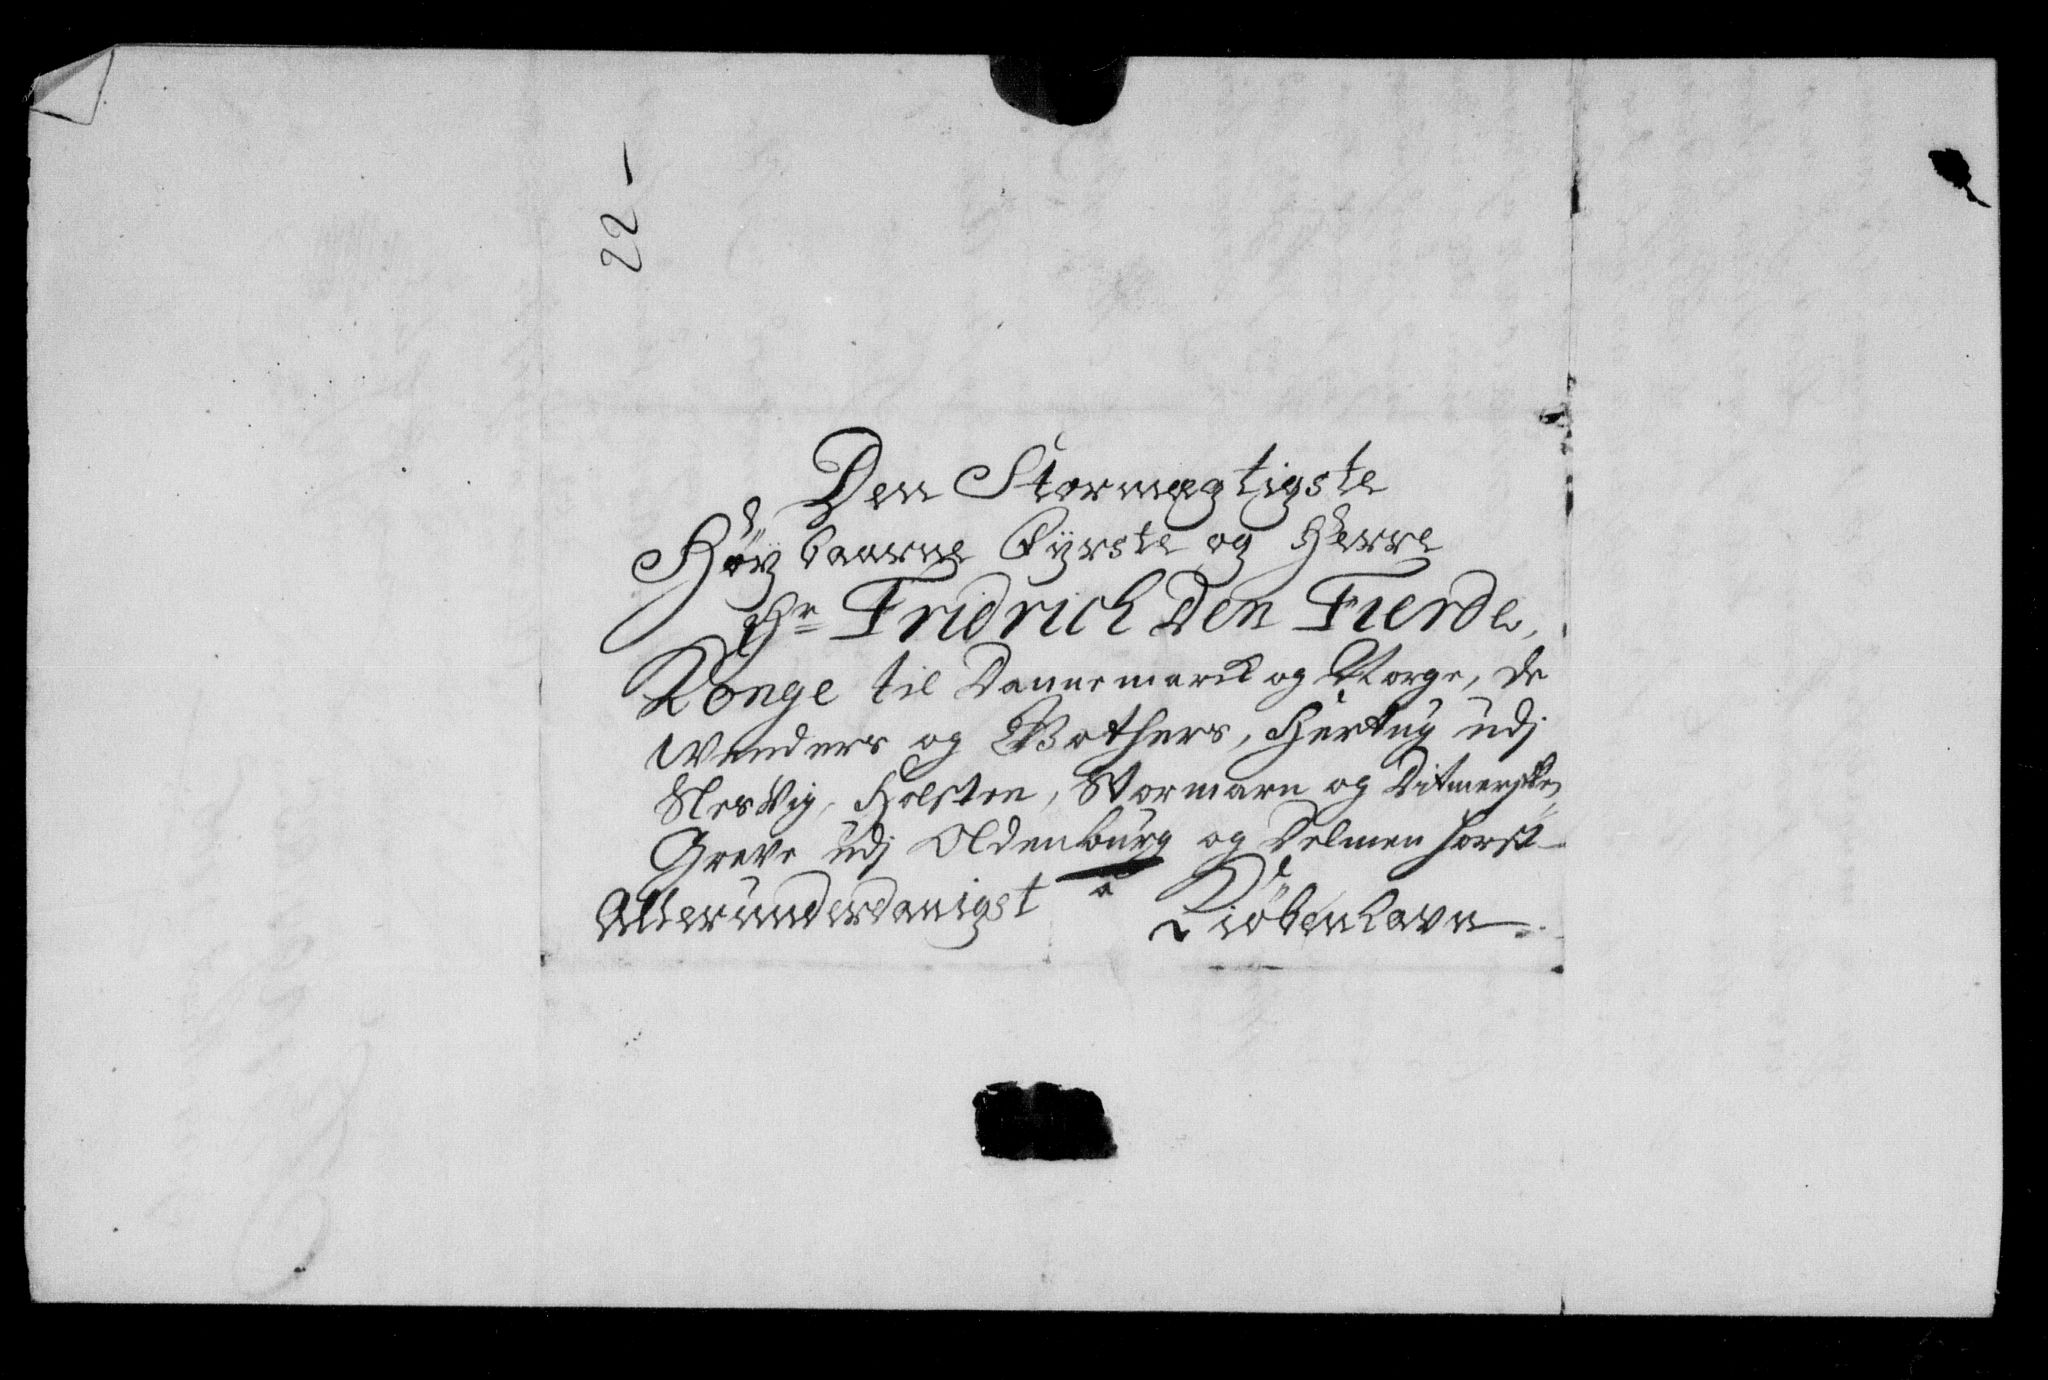 22 -
Den Stormægtigste
Høybaarne Fyrste og Herre
Hr Fridrich Den Fierde,
Konge til Dannemarck og Norge, de
Wenders og Gothers, Hertug udj
Slesvig, Holsten, Stormarn og Ditmersken,
Greve udj Oldenburg og Delmenhorst
Allerunderdanigst a Kiøbenhavn